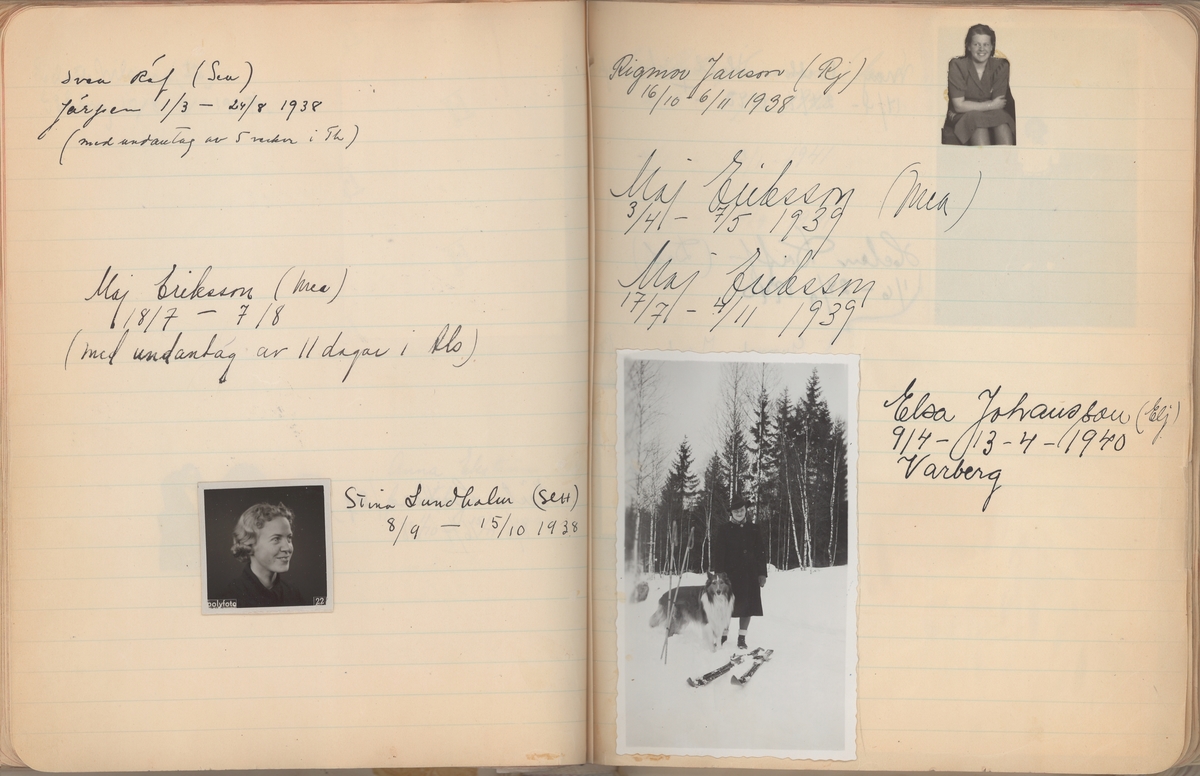 Sven Räf (Sea)
Järpen 1/3 – 24/8 1938
(med undantag av 5 veckor i Th)
Maj Eriksson (Mea)
18/7 – 7/8
(med undantag av 11 dagar i Als)
Stina Lundholm (SEH)
8/9 – 15/10 1938
polyfoto 22
Rigmor Jansson (Rj)
16/10 - 6/11 1938
Maj Eriksson (Mea)
3/41 – 7/5 1939
Maj Eriksson
17/7 – 4/11 1939
Elsa Johansson (Elj)
9/4 – 13-4-1940
Varberg